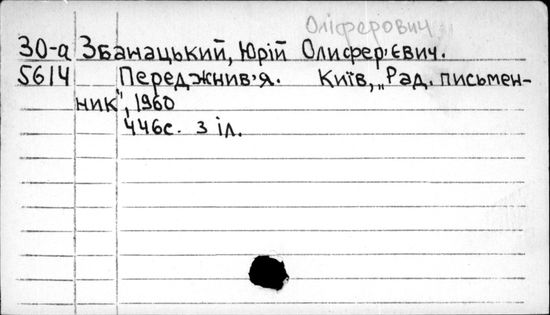 Оліферович
30-а Збанацький, Юрій Олифер'євич.
5614 Переджнив'я. Київ, „Рад. письмен-
ник", 1960
446с. з іл.